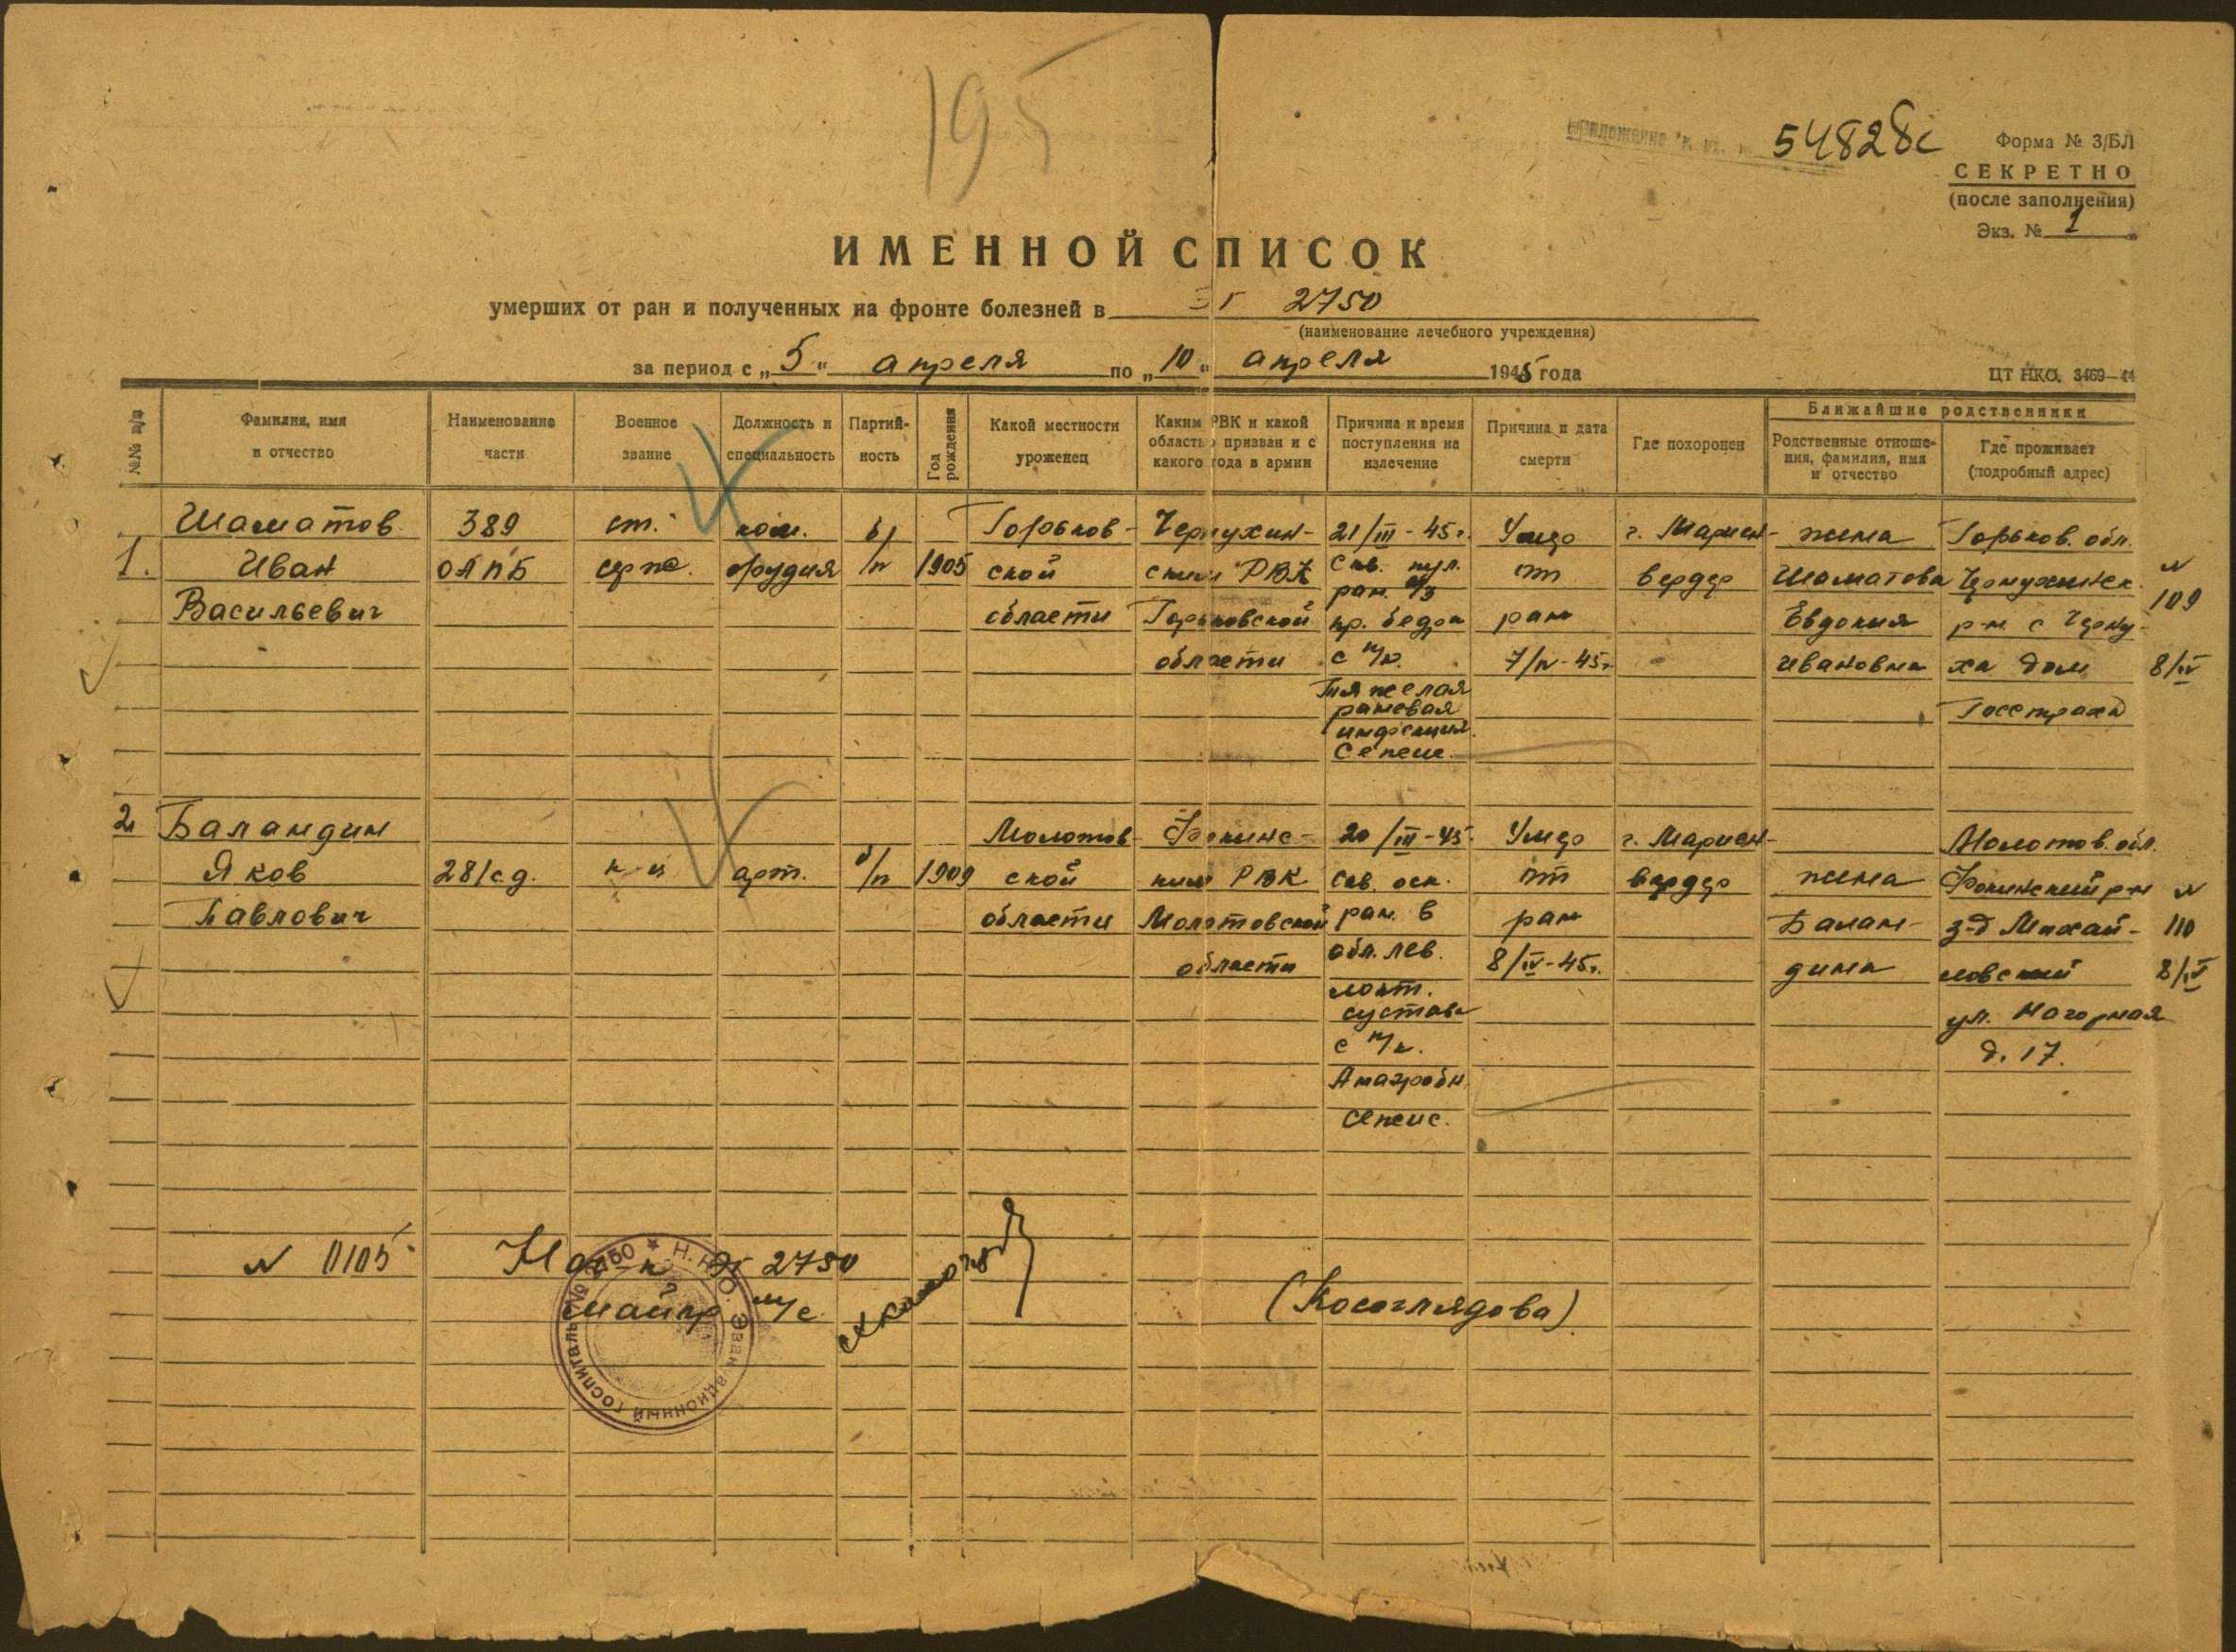 195
приложение к вх. 54828с
Форма № 3/БЛ
СЕКРЕТНО
(после заполнения)
Экз. № 1
ИМЕННОЙ СПИСОК
умерших от ран и полученных на фронте болезней в ЭГ 2750
(наименование лечебного учреждения)
за период с „5“ апреля по „10“ апреля 1945 года
ЦТ НКО. 3469—44
№№ п/п
Фамилия, имя и отчество
Наименование части
Военное звание
Должность и специальность
Партийность
Год рождения
Какой местности уроженец
Каким РВК и какой областью призван и с какого года в армии
Причина и время поступления на излечение
Причина и дата смерти
Где похоронен
Ближайшие родственники
Родственные отношения, фамилия, имя и отчество
Где проживает (подробный адрес)
1.
Шаматов
Иван
Васильевич
389
ОАПБ
ст.
серж.
ком.
орудия
б/п
1905
Горьков-
ской
области
Чернухин-
ским РВК
Горьковской
области
21/III-45г.
Скв. пул.
ран. в/з
пр. бедра
с п/к.
Тяжелая
раневая
инфекция.
Сепсис.
Умер
от
ран
7/IV-45г.
г. Мариен-
вердер
жена
Шаматова
Евдокия
Ивановна
Горьков. обл.
Чернухинск.
р-н с Черну-
ха дом
Госстраха
№
109
8/IV
2.
Баландин
Яков
Павлович
281 с.д.
к-ц
арт.
б/п
1909
Молотов-
ской
области
Фокинс-
ким РВК
Молотовской
области
20/III-45
Скв. оск.
ран. в
обл. лев.
локт.
сустава
с п/к.
Анаэробн.
сепсис.
Умер
от
ран
8/IV-45г.
г. Мариен-
вердер
жена
Балан-
дина
Молотов. обл.
Фокинский р-н
з-д Михай-
ловский
ул. Нагорная
д. 17.
№
110
8/IV
№ 0105
Нач-к ЭГ 2750
майор м/с
(Косоглядова)
Н.К.О. Эвакуационный госпиталь № 2750